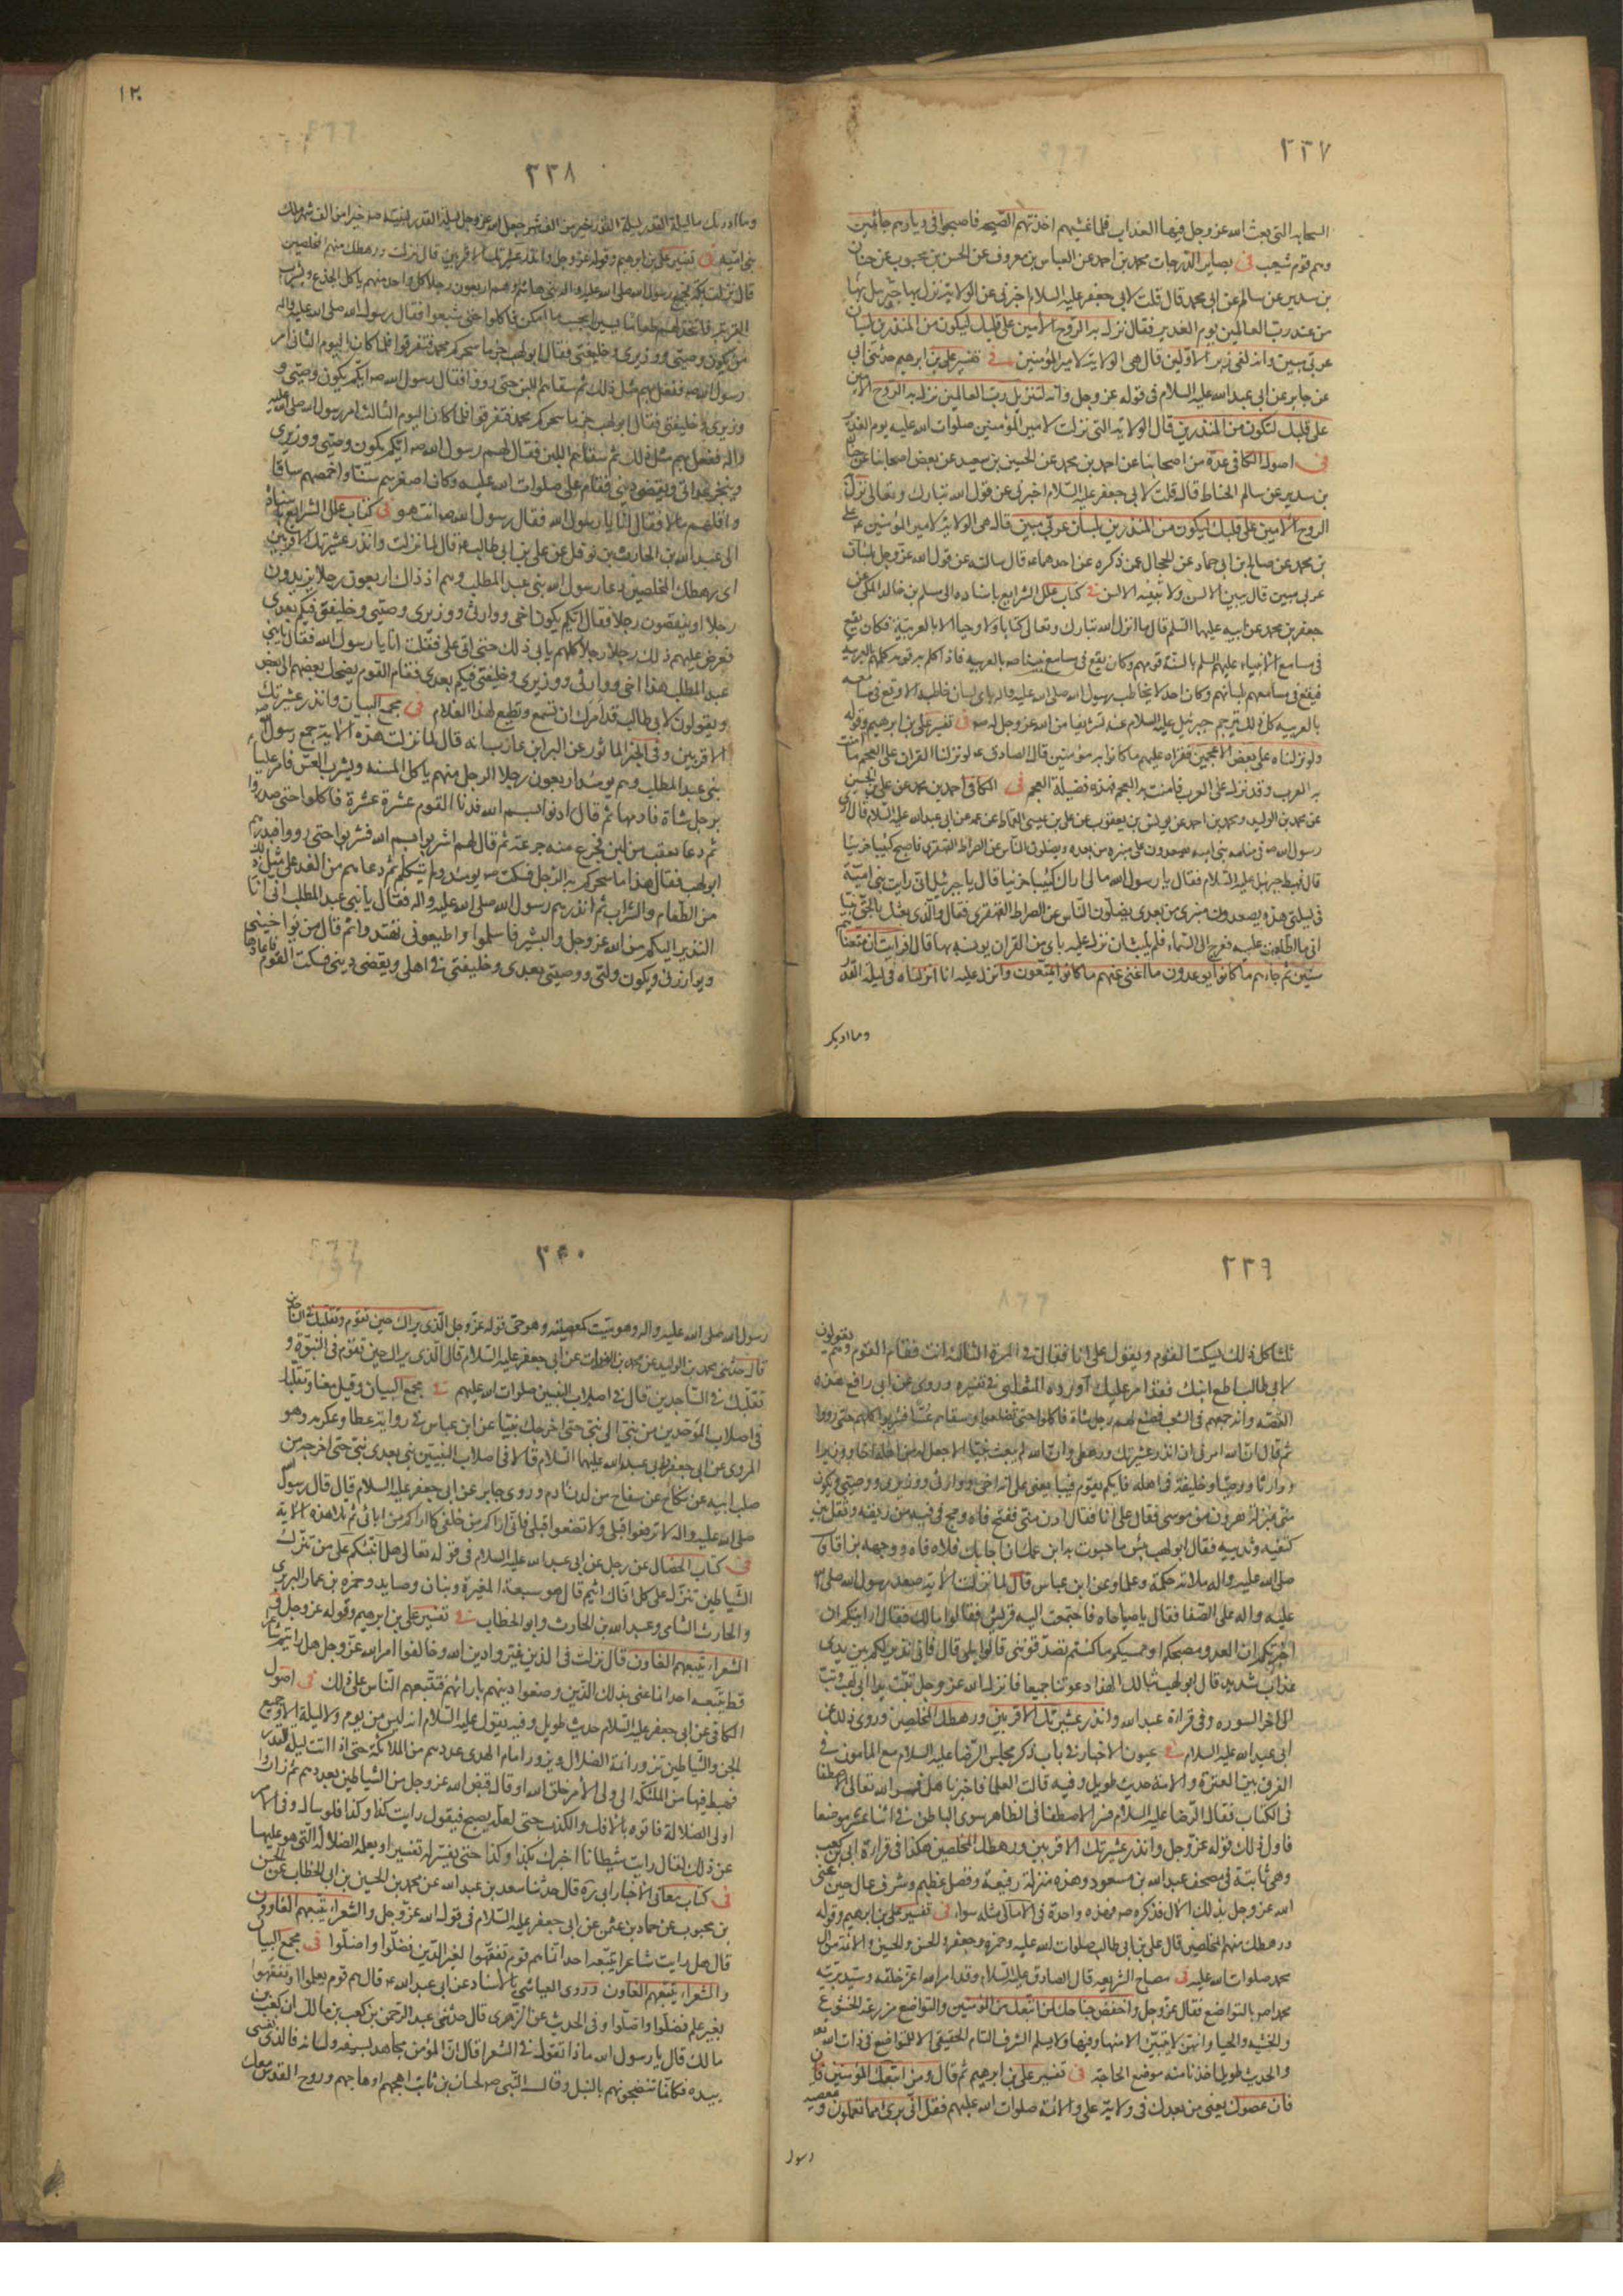 ٢٣٧
السحابه التى بعث الله عز وجل فيها العذاب فلما غشيهم اخذتهم الصيحه فاصبحوا فى ديارهم جاثمين
وهم قوم شعيب فى بصاير الدرجات محمد بن احمد عن العباس بن معروف عن الحسن بن محبوب عن حنان
بن سدير عن سالم عن ابى محمد قال قلت لابى جعفر عليه السلام اخبرنى عن الولاية نزل بها جبرئيل
من عند رب العالمين يوم الغدير فقال نزل به الروح الامين على قلبك ليكون من المنذرين بلسان
عربى مبين وانه لفى زبر الاولين قال هى الولاية لامير المؤمنين فى تفسير على بن ابراهيم حدثنى ابى
عن جابر عن ابى عبد الله عليه السلام فى قوله عز وجل وانه لتنزيل رب العالمين نزل به الروح الامين
على قلبك لتكون من المنذرين قال الولاية التى نزلت لامير المؤمنين صلوات الله عليه يوم الغدير
فى اصول الكافى عدة من اصحابنا عن احمد بن محمد عن الحسين بن سعيد عن بعض اصحابنا عن حنان
بن سدير عن سالم الحناط قال قلت لابى جعفر عليه السلام اخبرنى عن قول الله تبارك وتعالى نزل به
الروح الامين على قلبك ليكون من المنذرين بلسان عربى مبين قال هى الولاية لامير المؤمنين على
بن محمد عن صالح بن ابى حماد عن الحجال عمن ذكره عن احدهما قال سالته عن قول الله عز وجل بلسان
عربى مبين قال يبين الالسن ولا تبينه الالسن فى كتاب علل الشرايع باسناده الى مسلم بن خالد المكى عن
جعفر بن محمد عن ابيه عليهما السلم قال ما انزل الله تبارك وتعالى كتابا ولا وحيا الا بالعربية فكان يقع
فى مسامع الانبياء عليهم السلم بالسنة قومهم وكان يقع فى مسامع نبينا صه بالعربيه فاذا كلم به قومه كلمهم بالعربيه
فيقع فى مسامعهم بلسانهم وكان احد لا يخاطب رسول الله صلى الله عليه واله باى لسان خاطبه الا وقع فى مسامعه
بالعربيه كل ذلك يترجم جبرئيل عليه السلام عنه تشريفا من الله عز وجل له صه فى تفسير على بن ابرهيم وقوله
ولو نزلناه على بعض الاعجمين فقراه عليهم ما كانوا به مؤمنين قال الصادق عه لو نزلنا القران على العجم ما امنت
به العرب وقد نزل على العرب فامنت به العجم فهذه فضيلة العجم فى الكافى احمد بن محمد عن على بن الحسين
عن محمد بن الوليد ومحمد بن احمد عن يونس بن يعقوب عن على بن عيسى القماط عن عمه عن ابى عبد الله عليه السلام قال راى
رسول الله صه فى منامه بنى اميه يصعدون على منبره من بعده ويضلون الناس عن الصراط القهقرى فاصبح كئيبا حزينا
قال فهبط جبرئيل عليه السلام فقال يا رسول الله مالى اراك كئيبا حزينا قال يا جبرئيل انى رايت بنى امية
فى ليلتى هذه يصعدون منبرى من بعدى يضلون الناس عن الصراط القهقرى فقال والذى بعثك بالحق نبيا
انى ما اطلعت عليه فعرج الى السماء فلم يلبث ان نزل عليه باى من القران يونسه بها قال افرايت ان متعناهم
سنين ثم جاءهم ما كانوا يوعدون ما اغنى عنهم ما كانوا يمتعون وانزل عليه انا انزلناه فى ليلة القدر
وما ادريك
١٢٠
٢٣٨
وما ادريك ما ليلة القدر ليلة القدر خير من الف شهر جعل الله عز وجل ليلة القدر لنبيه صه خيرا من الف شهر ملك
بنى اميه فى تفسير على بن ابرهيم وقوله عز وجل وانذر عشيرتك الاقربين قال نزلت ورهطك منهم المخلصين
قال نزلت بمكة فجمع رسول الله صلى الله عليه واله بنى هاشم وهم اربعون رجلا كل واحد منهم ياكل الجذع ويشرب
القربة فاتخذ لهم طعاما يسيرا بحسب ما امكن فاكلوا حتى شبعوا فقال رسول الله صلى الله عليه واله
من يكون وصيى ووزيرى وخليفتى فقال ابو لهب جزما سحركم محمد فتفرقوا فلما كان اليوم الثانى امر
رسول الله صه ففعل بهم مثل ذلك ثم سقاهم اللبن حتى رووا فقال رسول الله صه ايكم يكون وصيى و
وزيرى وخليفتى فقال ابو لهب جزما سحركم محمد فتفرقوا فلما كان اليوم الثالث امر رسول الله صلى الله عليه
واله ففعل بهم مثل ذلك ثم سقاهم اللبن فقال لهم رسول الله صه ايكم يكون وصيى ووزيرى
وينجز عداتى ويقضى دينى فقام على صلوات الله عليه وكان اصغرهم سنا واخمصهم ساقا
واقلهم مالا فقال انا يا رسول الله فقال رسول الله صه انت هو فى كتاب علل الشرايع باسناده
الى عبد الله بن الحارث بن نوفل عن على بن ابى طالب عه قال لما نزلت وانذر عشيرتك الاقربين
اى رهطك المخلصين دعا رسول الله بنى عبد المطلب وهم اذ ذاك اربعون رجلا يزيدون
رجلا او ينقصون رجلا فقال ايكم يكون اخى ووارثى ووزيرى ووصيى وخليفتى فيكم بعدى
فعرض عليهم ذلك رجلا رجلا كلهم يابى ذلك حتى اتى على فقلت انا يا رسول الله فقال يا بنى
عبد المطلب هذا اخى ووارثى ووزيرى وخليفتى فيكم بعدى فقام القوم يضحك بعضهم الى بعض
ويقولون لابى طالب قد امرك ان تسمع وتطيع لهذا الغلام فى مجمع البيان وانذر عشيرتك
الاقربين وفى الخبر الماثور عن البرا بن عازب انه قال لما نزلت هذه الاية جمع رسول الله صه
بنى عبد المطلب وهم يومئذ اربعون رجلا الرجل منهم ياكل المسنه ويشرب العس فامر عليا
برجل شاة فادمها ثم قال ادنوا بسم الله فدنا القوم عشرة عشرة فاكلوا حتى صدروا
ثم دعا بقعب من لبن فجرع منه جرعة ثم قال لهم اشربوا بسم الله فشربوا حتى رووا فبدرهم
ابو لهب فقال هذا ما سحركم به الرجل فسكت صه يومئذ ولم يتكلم ثم دعاهم من الغد على مثل ذلك
من الطعام والشراب ثم انذرهم رسول الله صلى الله عليه واله فقال يا بنى عبد المطلب انى انا
النذير اليكم من الله عز وجل والبشير فاسلموا واطيعونى تهتدوا ثم قال من يواخينى
ويوازرنى ويكون وليى ووصيى بعدى وخليفتى فى اهلى ويقضى دينى فسكت القوم فاعادها
٢٣٩
ثلثا كل ذلك يسكت القوم ويقول على انا فقال فى المرة الثالثة انت فقام القوم وهم يقولون
لابى طالب اطع ابنك فقد امر عليك اورده الثعلبى فى تفسيره وروى عن ابى رافع هذه
القصه وانه جمعهم فى الشعب فصنع لهم رجل شاة فاكلوا حتى تضلعوا وسقاهم عسا فشربوا كلهم حتى رووا
ثم قال ان الله امرنى ان انذر عشيرتك ورهطى وان الله لم يبعث نبيا الا جعل له من اهله اخا ووزيرا
ووارثا ووصيا وخليفة فى اهله فايكم يقوم فيبايعنى على انه اخى ووارثى ووزيرى ووصيى ويكون
منى بمنزلة هرون من موسى فقال على انا فقال ادن منى ففتح فاه ومج فى فيه من ريقه وتفل بين
كتفيه وثدييه فقال ابو لهب بئس ما حبوت به ابن عمك ان اجابك فملات فاه ووجهه بزاقا فقال
صلى الله عليه واله ملاته حكمة وعلما وعن ابن عباس قال لما نزلت الاية صعد رسول الله صلى الله
عليه واله على الصفا فقال يا صباحاه فاجتمعت اليه قريش فقالوا مالك فقال ارايتكم ان
اخبرتكم ان العدو مصبحكم او ممسيكم ما كنتم تصدقوننى قالوا بلى قال فانى نذير لكم بين يدى
عذاب شديد قال ابو لهب تبا لك الهذا دعوتنا جميعا فانزل الله عز وجل تبت يدا ابى لهب وتب
الى اخر السوره وفى قراءة عبد الله وانذر عشيرتك الاقربين ورهطك المخلصين وروى ذلك عن
ابى عبد الله عليه السلام فى عيون الاخبار فى باب ذكر مجلس الرضا عليه السلام مع المامون فى
الفرق بين العترة والامة حديث طويل وفيه قالت العلما فاخبرنا هل فسر الله تعالى الاصطفا
فى الكتاب فقال الرضا عليه السلام فسر الاصطفا فى الظاهر سوى الباطن فى اثنا عشر موضعا
فاول ذلك قوله عز وجل وانذر عشيرتك الاقربين ورهطك المخلصين هكذا فى قراءة ابى بن كعب
وهى ثابتة فى مصحف عبد الله بن مسعود وهذه منزلة رفيعة وفضل عظيم وشرف عال حين عنى
الله عز وجل بذلك الال فذكره صه فهذه واحدة فى الامالى مثله سواء فى تفسير على بن ابرهيم وقوله
ورهطك منهم المخلصين قال على بن ابى طالب صلوات الله عليه وحمزة وجعفر والحسن والحسين والائمة من ال
محمد صلوات الله عليه فى مصباح الشريعه قال الصادق عليه السلام وقد امر الله اعز خلقه وسيد بريته
محمدا صه بالتواضع فقال عز وجل واخفض جناحك لمن اتبعك من المؤمنين والتواضع مزرعة الخشوع
والخشيه والحيا وانهن لا يتبين الا منها وفيها ولا يسلم الشرف التام الحقيقى الا للتواضع فى ذات الله تعالى
والحديث طويل اخذنا منه موضع الحاجة فى تفسير على بن ابرهيم ثم قال ومن اتبعك من المؤمنين
فان عصوك يعنى من بعدك فى ولاية على والائمة صلوات الله عليهم فقل انى برى مما تعملون ومعصيه
رسول
٢٤٠
رسول الله صلى الله عليه واله وهو ميت كمعصيته وهو حى قوله عز وجل الذى يراك حين تقوم وتقلبك فى الساجدين
قال حدثنى محمد بن الوليد عن محمد بن الفرات عن ابى جعفر عليه السلام قال الذى يراك حين تقوم فى النبوة و
تقلبك فى الساجدين قال فى اصلاب النبيين صلوات الله عليهم فى مجمع البيان وقيل معناه وتقلبك
فى اصلاب الموحدين من نبى الى نبى حتى اخرجك نبيا عن ابن عباس فى رواية عطا وعكرمه وهو
المروى عن ابى جعفر وابى عبد الله عليهما السلام قالا فى اصلاب النبيين نبى بعد نبى حتى اخرجه من
صلب ابيه عن نكاح غير سفاح من لدن ادم وروى جابر عن ابى جعفر عليه السلام قال قال رسول الله
صلى الله عليه واله لا ترفعوا قبلى ولا تضعوا قبلى فانى اراكم من خلفى كما اراكم من امامى ثم تلا هذه الاية
فى كتاب الخصال عن رجل عن ابى عبد الله عليه السلام فى قوله تعالى هل انبئكم على من تنزل
الشياطين تنزل على كل افاك اثيم قال هم سبعة المغيرة وبنان وصايد وحمزه بن عمار البربرى
والحارث الشامى وعبد الله بن الحارث وابو الخطاب فى تفسير على بن ابرهيم وقوله عز وجل
الشعراء يتبعهم الغاون قال نزلت فى الذين غيروا دين الله وخالفوا امر الله عز وجل هل رايتم شاعرا
قط يتبعه احد انما عنى بذلك الذين وضعوا دينهم بارائهم فتتبعهم الناس على ذلك فى اصول
الكافى عن ابى جعفر عليه السلام حديث طويل وفيه يقول عليه السلام انه ليس من يوم ولا ليلة الا وجميع
الجن والشياطين تزور ائمة الضلال ويزور امام الهدى عددهم من الملائكة حتى اذا اتت ليلة القدر
فهبط فيها من الملئكة الى ولى الامر خلق الله او قال قيض الله عز وجل من الشياطين بعددهم ثم زاروا
اولى الضلالة فاتوه بالافك والكذب حتى لعله يصبح فيقول رايت كذا وكذا فلو سال ولى الامر
عن ذلك لقال رايت شيطانا اخبرك بكذا وكذا حتى يفسر له تفسيرا ويعلمه الضلالة التى هو عليها
فى كتاب معانى الاخبار ابى ره قال حدثنا سعد بن عبد الله عن محمد بن الحسين بن ابى الخطاب عن الحسن
بن محبوب عن حماد بن عثمن عن ابى جعفر عليه السلام فى قول الله عز وجل والشعراء يتبعهم الغاون
قال هل رايت شاعرا يتبعه احد انما هم قوم تفقهوا لغير الدين فضلوا واضلوا فى مجمع البيان
والشعراء يتبعهم الغاون وروى العياشى بالاسناد عن ابى عبد الله عه قال هم قوم تعلموا وتفقهوا
بغير علم فضلوا واضلوا وفى الحديث عن الزهرى قال حدثنى عبد الرحمن بن كعب بن مالك ان كعب بن
مالك قال يا رسول الله ماذا تقول فى الشعرا قال ان المؤمن مجاهد بسيفه ولسانه فالذى نفسى
بيده فكانما تنضحونهم بالنبل وقال النبى صه لحسان بن ثابت اهجهم او هاجهم وروح القدس معك